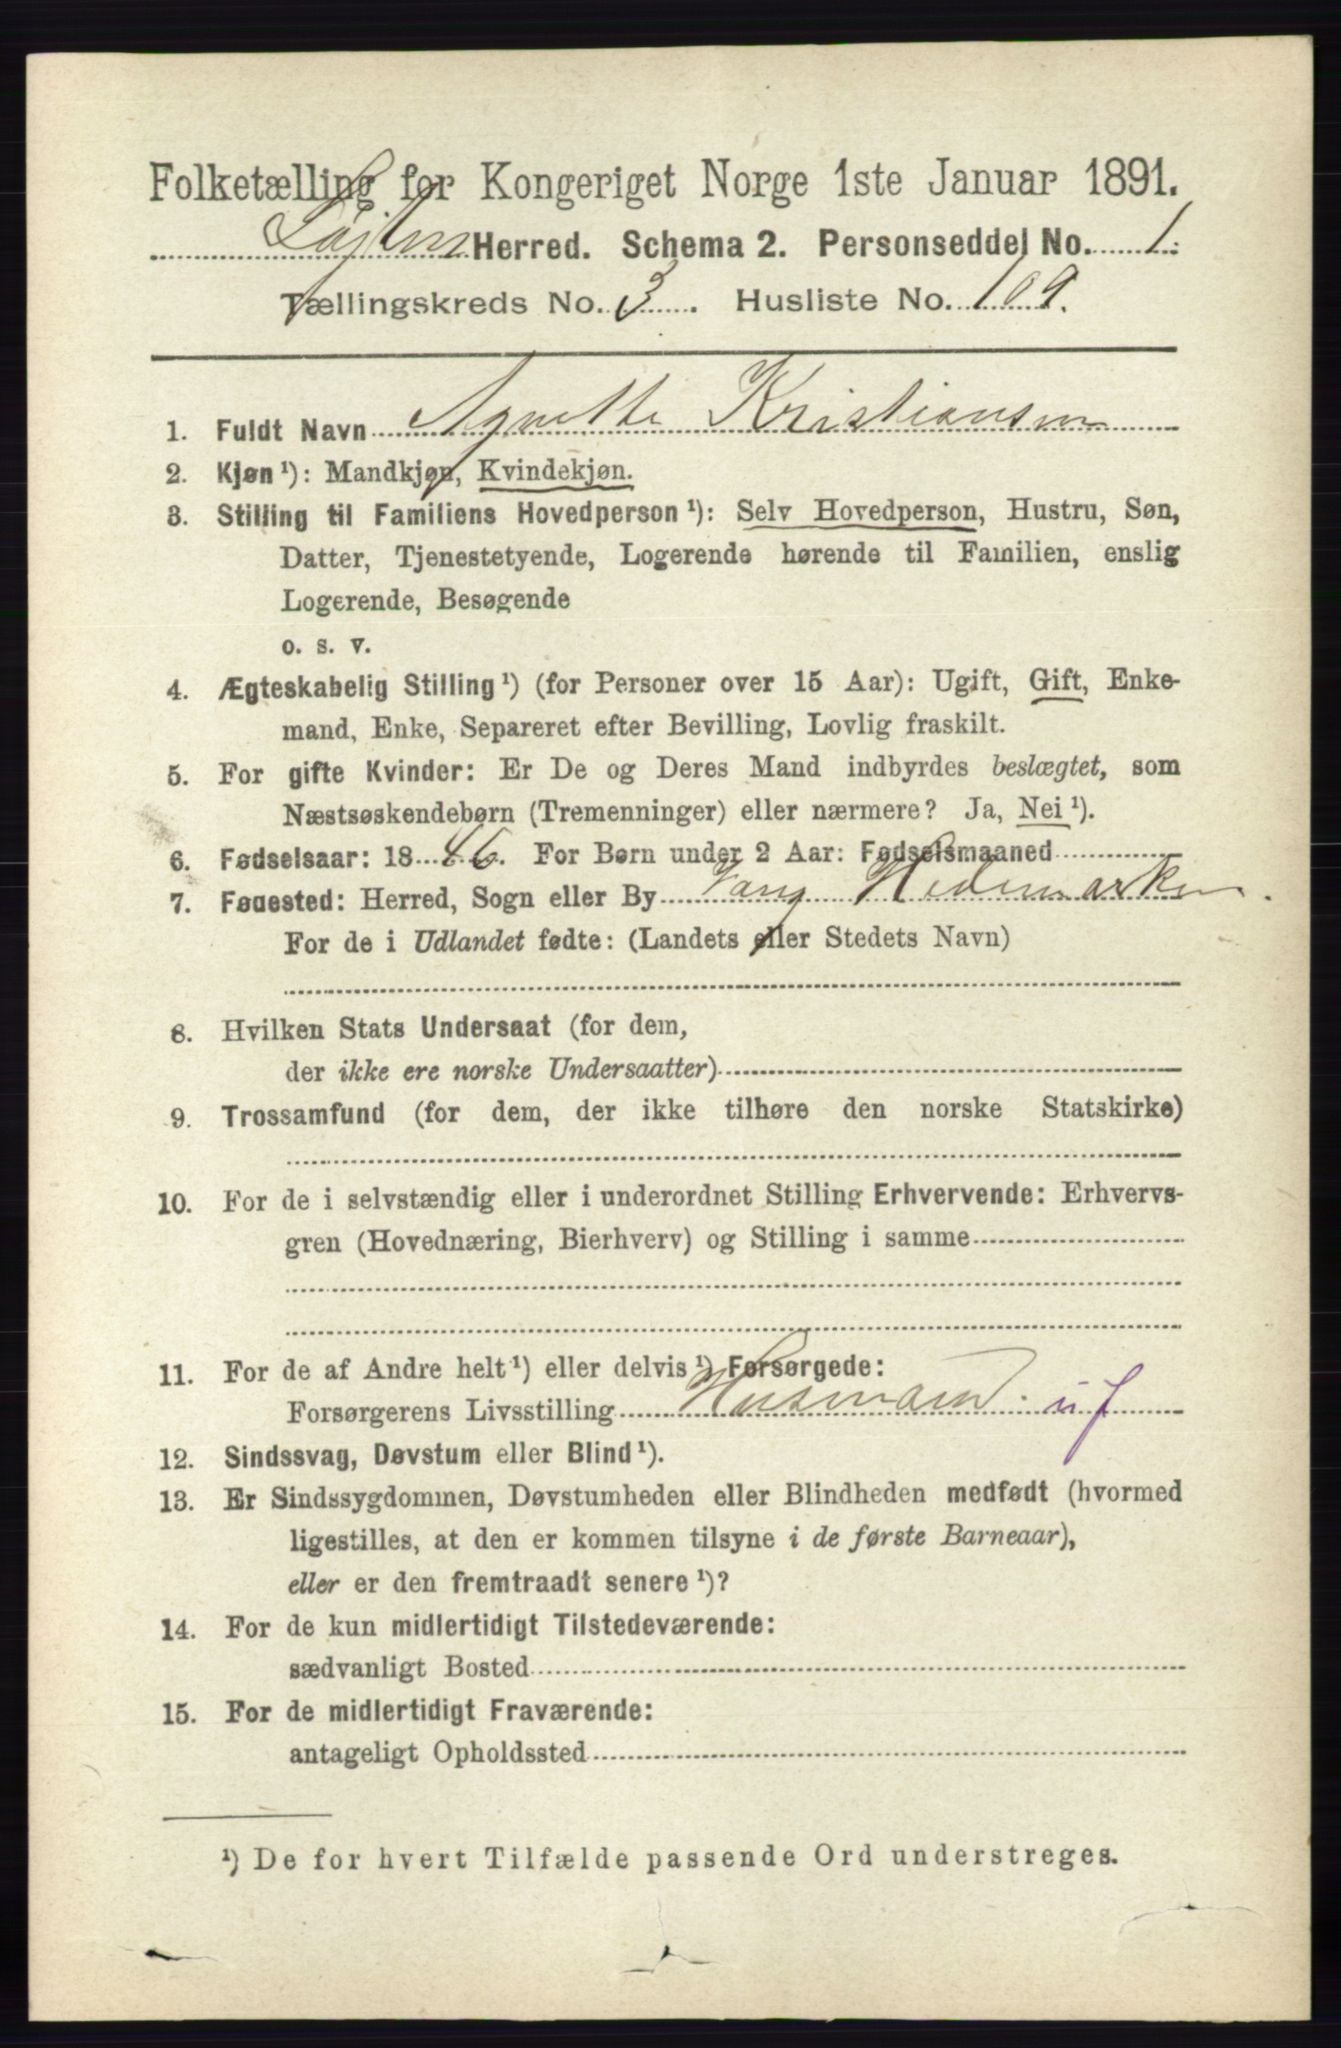 Folketælling for Kongeriget Norge 1ste Januar 1891.
Løjten Herred. Schema 2. Personseddel No. 1.
Tællingskreds No. 3. Husliste No. 109.
1. Fuldt Navn Agnethe Kristiansen
2. Kjøn ¹): Mandkjøn, Kvindekjøn.
3. Stilling til Familiens Hovedperson ¹): Selv Hovedperson, Hustru, Søn,
Datter, Tjenestetyende, Logerende hørende til Familien, enslig
Logerende, Besøgende
o. s. v.
4. Ægteskabelig Stilling ¹) (for Personer over 15 Aar): Ugift, Gift, Enke-
mand, Enke, Separeret efter Bevilling, Lovlig fraskilt.
5. For gifte Kvinder: Er De og Deres Mand indbyrdes beslægtet, som
Næstsøskendebørn (Tremenninger) eller nærmere? Ja, Nei ¹).
6. Fødselsaar: 1846. For Børn under 2 Aar: Fødselsmaaned
7. Fødested: Herred, Sogn eller By Vang Hedemarken.
For de i Udlandet fødte: (Landets eller Stedets Navn)
8. Hvilken Stats Undersaat (for dem,
der ikke ere norske Undersaatter)
9. Trossamfund (for dem, der ikke tilhøre den norske Statskirke)
10. For de i selvstændig eller i underordnet Stilling Erhvervende: Erhvervs-
gren (Hovednæring, Bierhverv) og Stilling i samme
11. For de af Andre helt ¹) eller delvis ¹) Forsørgede:
Forsørgerens Livsstilling Husmand. u f
12. Sindssvag, Døvstum eller Blind ¹).
13. Er Sindssygdommen, Døvstumheden eller Blindheden medfødt (hvormed
ligestilles, at den er kommen tilsyne i de første Barneaar),
eller er den fremtraadt senere ¹)?
14. For de kun midlertidigt Tilstedeværende:
sædvanligt Bosted
15. For de midlertidigt Fraværende:
antageligt Opholdssted
¹) De for hvert Tilfælde passende Ord understreges.